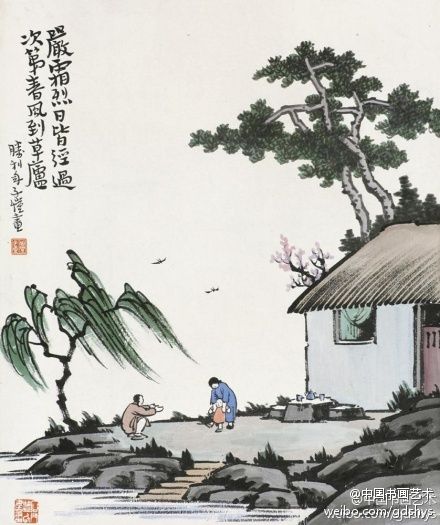 嚴霜烈日皆經過
次第春風到草廬
勝利年子愷畫
@中国书画艺术
weibo.com/gdzhys